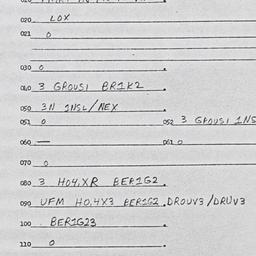 020 LOX
021 0
030 0
040 3 GROUSI BR1K2
050 3N INSL/NEX
051 0 052 3 GROUSI INS
060 — 061 0
070 0
080 3 HO4,XR BER1G2
090 UFM HO,4X3 BER1G2,DROUV3/DRUV3
100 BER1G23
110 0